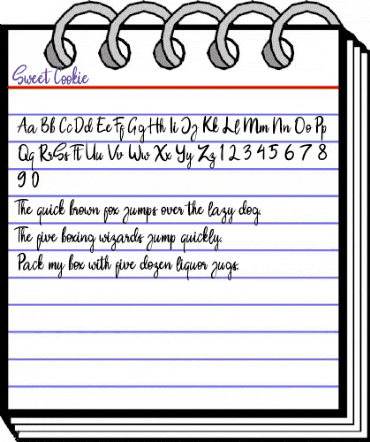 Sweet Cookie
Aa Bb Cc Dd Ee Ff Gg Hh Ii Jj Kk Ll Mm Nn Oo Pp
Qq Rr Ss Tt Uu Vv Ww Xx Yy Zz 1 2 3 4 5 6 7 8
9 0
The quick brown fox jumps over the lazy dog.
The five boxing wizards jump quickly.
Pack my box with five dozen liquor jugs.